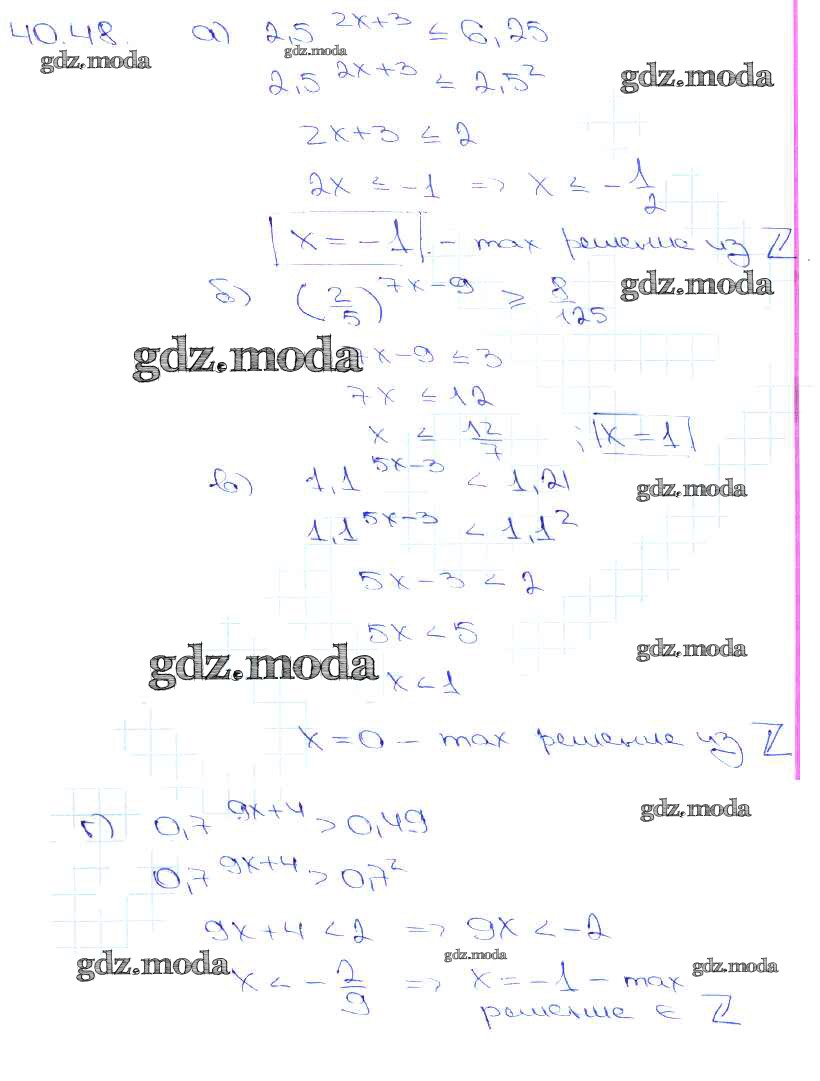 40.48. а) 2,5^(2x+3) ≤ 6,25
gdz.moda gdz.moda
2,5^(2x+3) ≤ 2,5² gdz.moda
2x+3 ≤ 2
2x ≤ -1 => x ≤ -1/2
|x = -1|. - max решение из ℤ
б) (2/5)^(7x-9) ≥ 8/125 gdz.moda
gdz.moda 7x-9 ≤ 3
7x ≤ 12
x ≤ 12/7 ; |x = 1|
в) 1,1^(5x-3) < 1,21 gdz.moda
1,1^(5x-3) < 1,1²
5x-3 < 2
5x < 5 gdz.moda
gdz.moda x < 1
x = 0 - max решение из ℤ
gdz.moda
г) 0,7^(9x+4) > 0,49
0,7^(9x+4) > 0,7²
9x+4 < 2 => 9x < -2
gdz.moda gdz.moda gdz.moda
x < -2/9 => x = -1 - max
решение ∈ ℤ